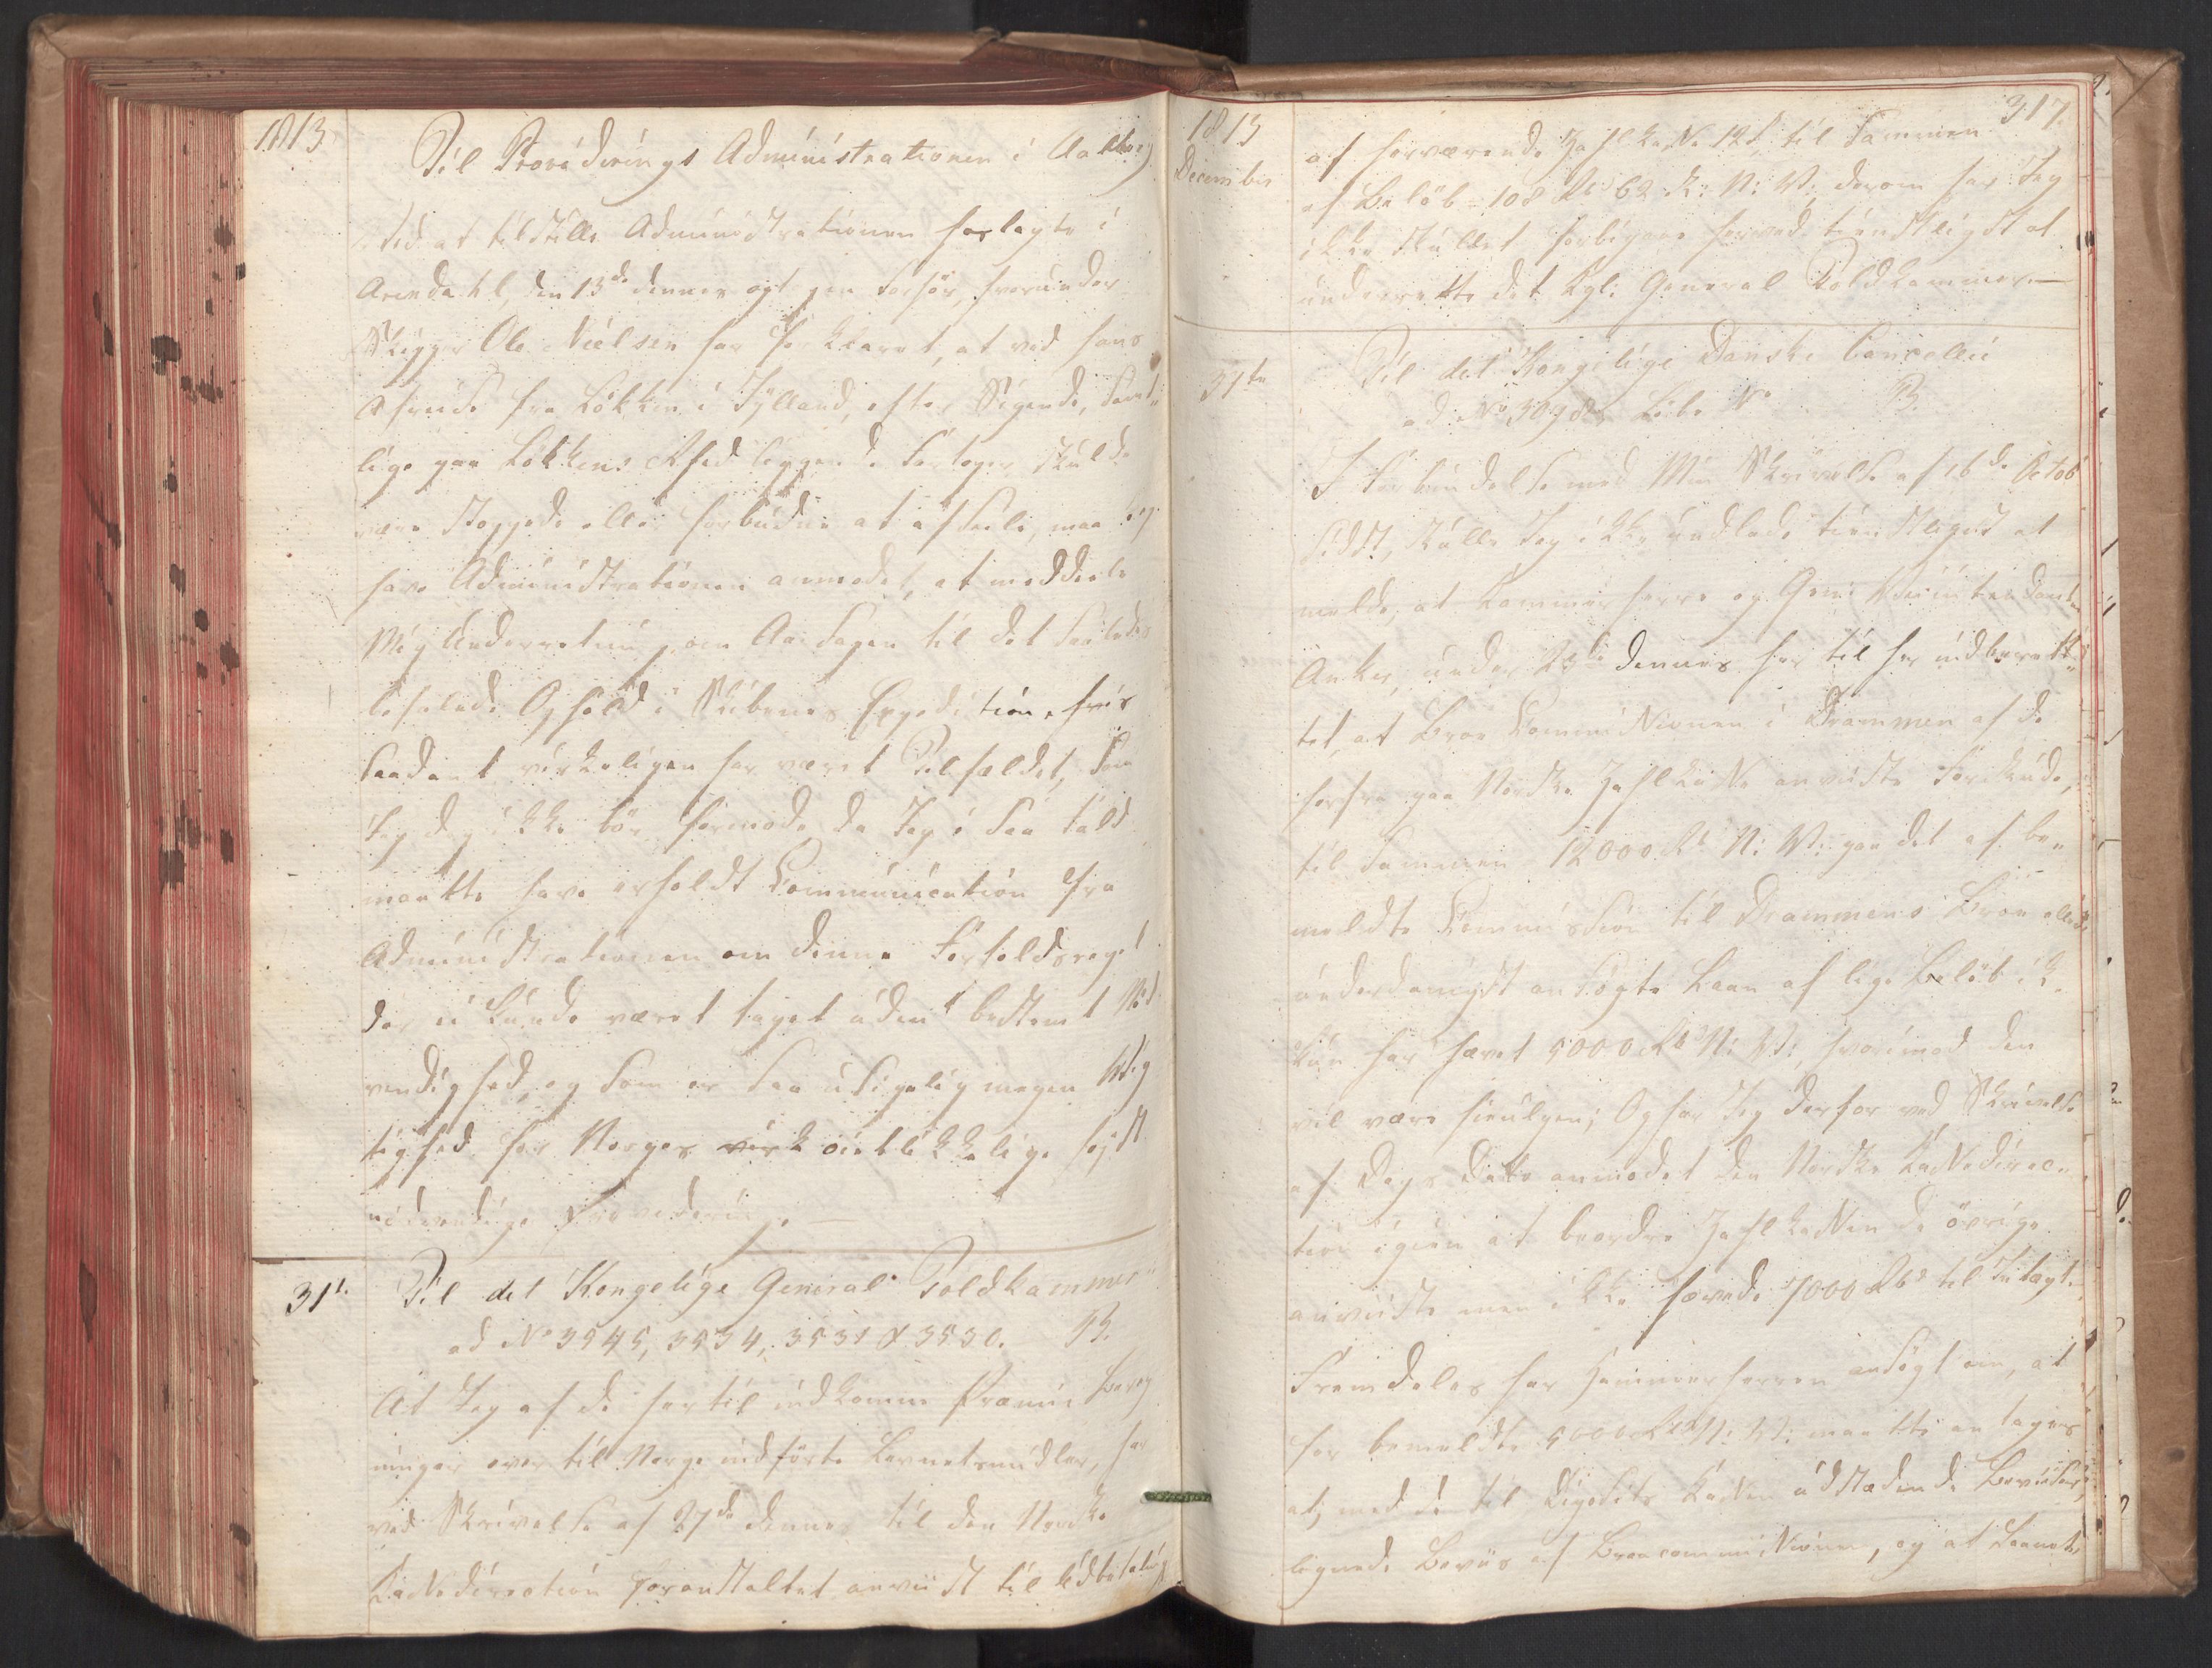 1813
Til Providerings Administrationen i Aalborg
Ved at tilstille Administrationen hoslagte i
Arendahl, den 13de dennes optagne Forhör, hvorunder
Skipper Ole Nielsen har forklaret, at ved hans
Afreise fra Lökken i Jylland, efter Sigende, samt„
lige paa Lökkens Rhed liggende Fartøyer skulde
være stoppede eller forbudne at afseile, maa jeg
have Administrationen anmodet, at meddeele
Mig Underretning om Aarsagen til det saaledes
befalede Ophold i Skibenes Expedition, hvis
saadant virkeligen har været Tilfældet, som
Jeg dog ikke bör formode, da Jeg i saa fald
maatte have erholdt Communication fra
Administrationen om denne Forholdsregel
der ei kunde været taget uden bestemt Nöd
vendighed, og som er saa usigelig megen Vig
tighed for Norges virk øieblikkelige höist
nödvendige Providering. —
31te Til det Kongelige General Toldkammer
ad No 3545, 3534, 3531 & 3530. B.
At Jeg af de hertil indkomne Præmie Bereg
ninger over til Norge indförte Levnetsmidler, har
ved Skrivelse af 27de dennes til den Norske
Kassedirection foranstaltet anviist til Udbetaling
317.
1813
December
af herværende Zahlkasse 12 til Sammen
af Belöb 108 Rb 62 s: N: V: derom har Jeg
ikke skullet forbigaae herved tienstligst at
underrette det Kgl: General Toldkammer. —
31te Til det Kongelige Danske Cancellie
ad No 3078 Litr. No B.
I Forbindelse med Min Skrivelse af 16de Octobr
sidst, skulle Jeg ikke undlade tienstligst at
melde, at Kammerherre og Gen: Veiintendant
Anker, under 23de dennes har til her indberet„
tet, at Broe Commissionen i Drammen af de
herfra paa Norske Zahlkasse anviiste Forskud,
til Sammen 12000 Rb N: V: paa det af be„
meldte Commission til Drammens Broe allerede
underdanigst ansögte Laan af lige Belöb ikke
kun har hævet 5000 Rbd N: V:, hvorimod den
vil være hiulpen; Og har Jeg derfor ved Skrivelse
af Dags Dato anmodet den Norske Kassedirec„
tion igien at beordre Zahlkassen de övrige
anviiste men ikke hævede 7000 Rbd til Indtægt.
Fremdeles har Kammerherren ansögt om, at
for bemeldte 5000 Rbd N: V: maatte antages
at, med den til Deposito Kassen udstædende Beviiser,
lignende Beviis af Broecommissionen, og at Laanet